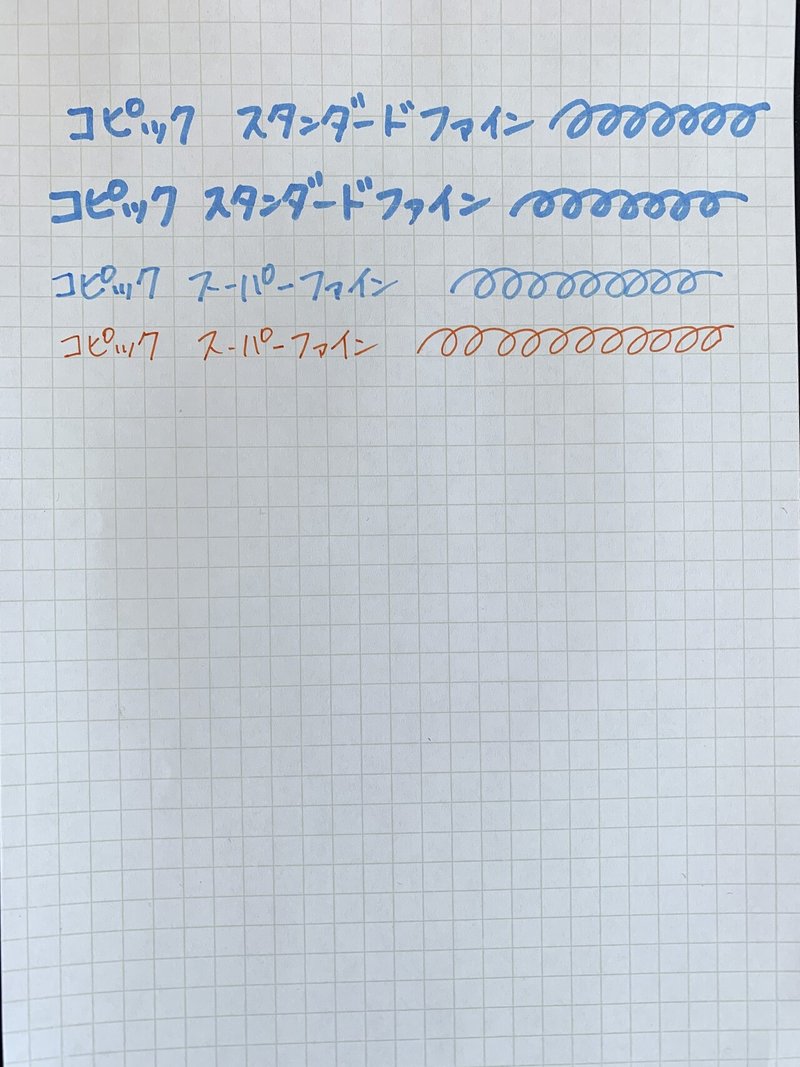 コピック スタンダードファイン
コピック スタンダードファイン
コピック スーパーファイン
コピック スーパーファイン